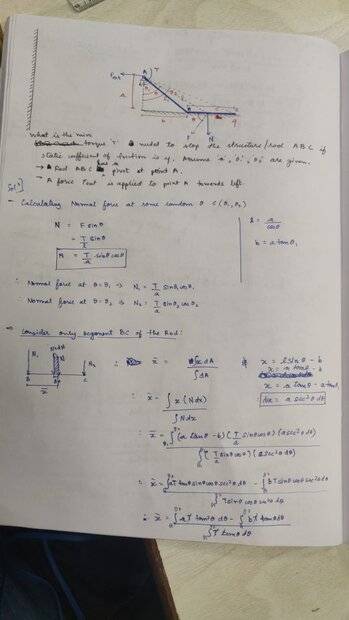 Fext
A
T
a
b
F
N
what is the min.
torque 'T' needed to stop the structure/rod ABC if
static coefficient of friction is η. Assume 'a', θ₁, θ₂ are given.
→ Rod ABC has a pivot at point A.
→ A force Text is applied to point A towards left.
Solⁿ)
- Calculating Normal force at some random θ ∈ (θ₁, θ₂)
N = F sinθ
= T/l sinθ
N = T/a sinθ cosθ
l = a/cosθ
b = a tanθ₁
∴ Normal force at θ=θ₁ → N₁ = T/a sinθ₁ cosθ₁
Normal force at θ=θ₂ → N₂ = T/a sinθ₂ cosθ₂
⇒ Consider only segment BC of the Rod:
N₁
N
N₂
B
C
x̄
∴ x̄ = ∫x dA / ∫dA
x = l sinθ - b
x = a tanθ - b
x = a tanθ - a tanθ₁
dx = a sec²θ dθ
∴ x̄ = ∫x (N dx) / ∫N dx
∴ x̄ = ∫(a tanθ - b)(T/a sinθ cosθ)(a sec²θ dθ) / ∫(T/a sinθ cosθ)(a sec²θ dθ)
∴ x̄ = ∫aT tanθ sinθ cosθ sec²θ dθ - ∫bT sinθ cosθ sec²θ dθ / ∫T sinθ cosθ sec²θ dθ
∴ x̄ = ∫aT tan²θ dθ - ∫bT tanθ dθ / ∫T tanθ dθ